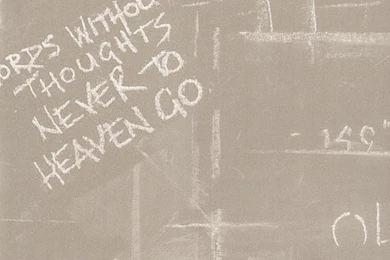 ORDS WITHOU
THOUGHTS
NEVER TO
HEAVEN GO